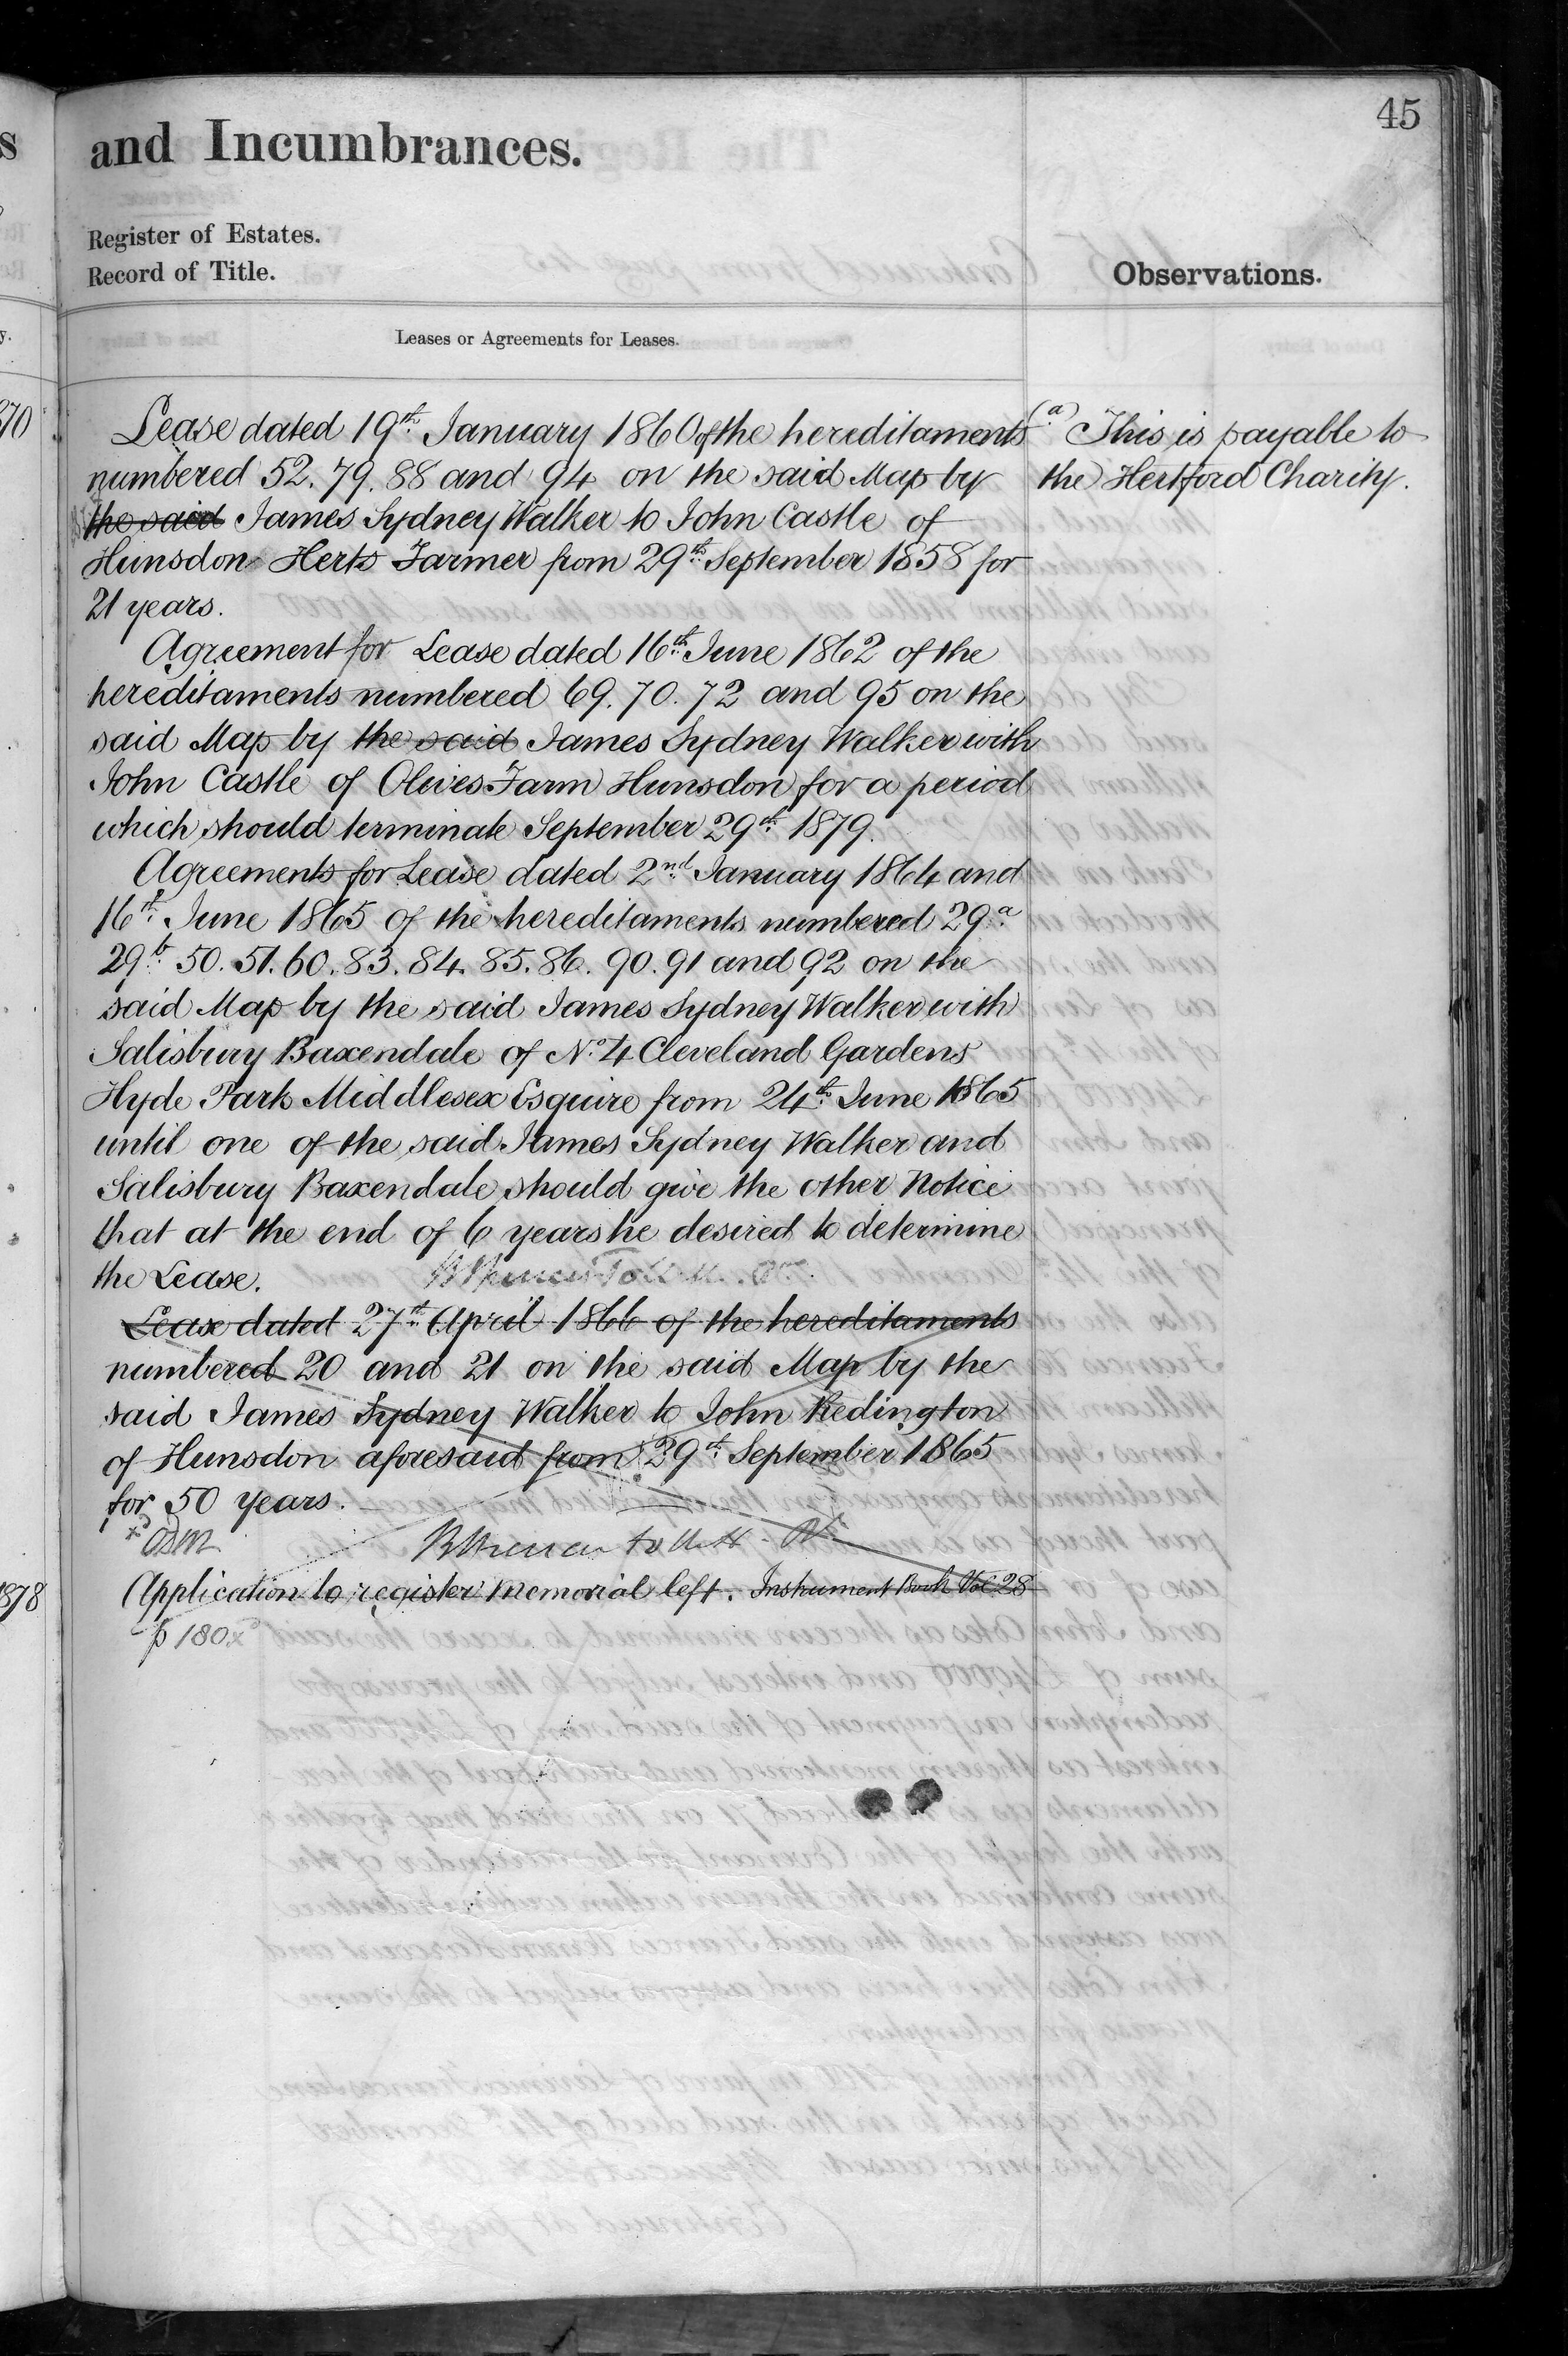 45
and Incumbrances.
Register of Estates.
Record of Title.
Observations.
Leases or Agreements for Leases.
Lease dated 19th January 1860 of the hereditaments
numbered 52. 79. 88 and 94 on the said Map by
the said James Sydney Walker to John Castle of
Hunsdon Herts Farmer from 29th September 1858 for
21 years.
Agreement for Lease dated 16th June 1862 of the
hereditaments numbered 69. 70. 72 and 95 on the
said Map by the said James Sydney Walker with
John Castle of Olives Farm Hunsdon for a period
which should terminate September 29th 1879.
Agreements for Lease dated 2nd January 1864 and
16th June 1865 of the hereditaments numbered 29a
29b 50. 51. 60. 83. 84. 85. 86. 90. 91 and 92 on the
said Map by the said James Sydney Walker with
Salisbury Baxendale of No. 4 Cleveland Gardens
Hyde Park Middlesex Esquire from 24th June 1865
until one of the said James Sydney Walker and
Salisbury Baxendale should give the other Notice
that at the end of 6 years he desired to determine
the Lease.
Lease dated 27th April 1866 of the hereditaments
numbered 20 and 21 on the said Map by the
said James Sydney Walker to John Redington
of Hunsdon aforesaid from 29th September 1865
for 50 years.
Application to register memorial left. Instrument Book Vol 28
p 180
(a) This is payable to
the Hertford Charity.
870
1878